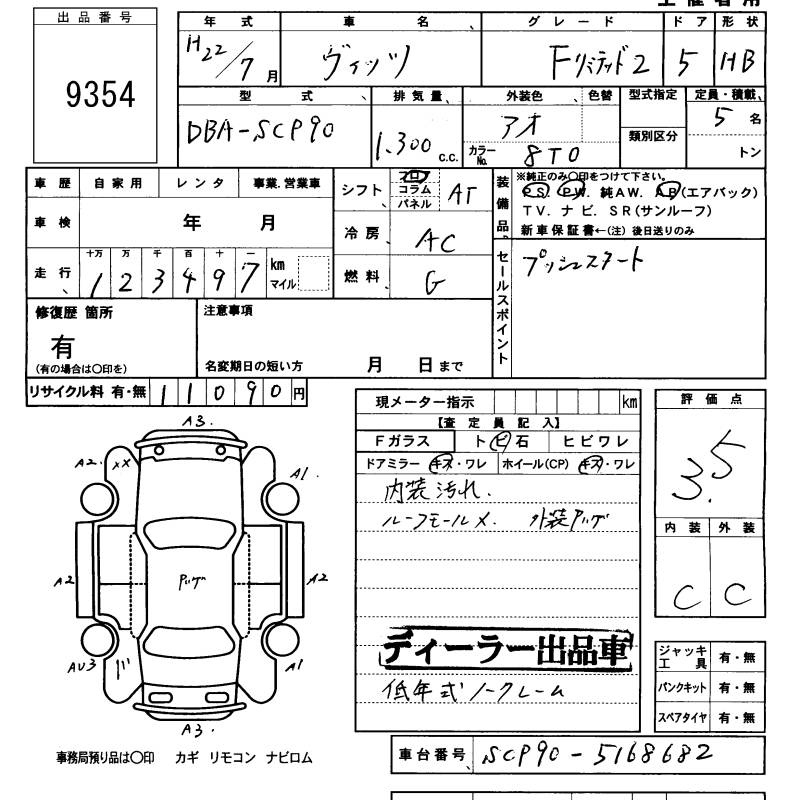 出品番号
9354
年式 車名 グレード ドア 形状
H22/7月 ヴィッツ Fリミテッド2 5 HB
型式 排気量 外装色 色替 型式指定 定員・積載
DBA-SCP90 1.300 c.c. アオ 類別区分 5名
カラーNo. 8T0 トン
車歴 自家用 レンタ 事業.営業車 シフト フロア コラム パネル AT
装備品 ※純正のみ〇印をつけて下さい。
PS. PW. 純AW. AB(エアバック)
TV. ナビ. SR(サンルーフ)
新車保証書←(注)後日送りのみ
車検 年 月 冷房 AC
走行 十万 万 千 百 十 一 km マイル
1 2 3 4 9 7
燃料 G
セールスポイント プッシュスタート
修復歴 箇所 注意事項
有
(有の場合は〇印を) 名変期日の短い方 月 日まで
リサイクル料 有・無 11090円
現メーター指示 km
【査定員記入】
Fガラス トビ石 ヒビワレ
ドアミラー キズ・ワレ ホイール(CP) キズ・ワレ
内装汚れ.
ルーフモールメ. 外装
ディーラー出品車
低年式ノークレーム
評価点
3.5
内装 外装
C C
ジャッキ工具 有・無
パンクキット 有・無
スペアタイヤ 有・無
A3.
A2. XX A1
A2 A2
AU3 A1
A3.
事務局預り品は〇印 カギ リモコン ナビロム
車台番号 SCP90-5168682